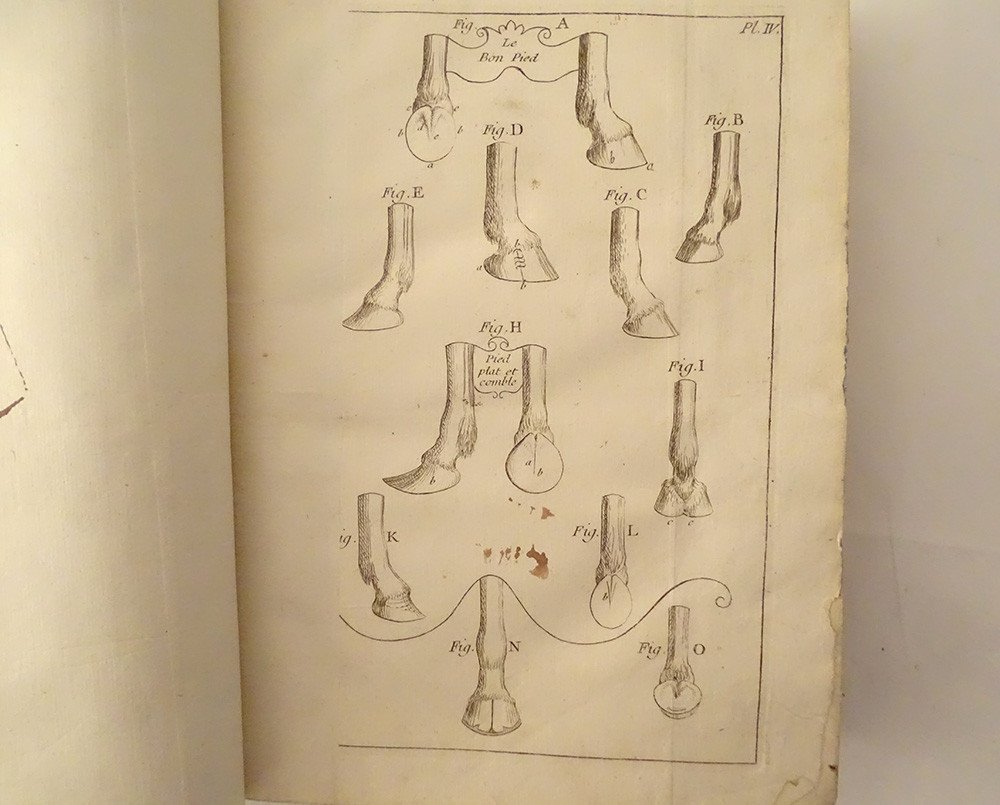 Pl. IV.
Fig A
Le
Bon Pied
c e
b d e b
a
b a
Fig. D
Fig. B
Fig. E
Fig. C
a
b
Fig. H
Pied
plat et
comble
Fig. I
b
a b
c c
ig. K
Fig. L
b
Fig. N
Fig. O